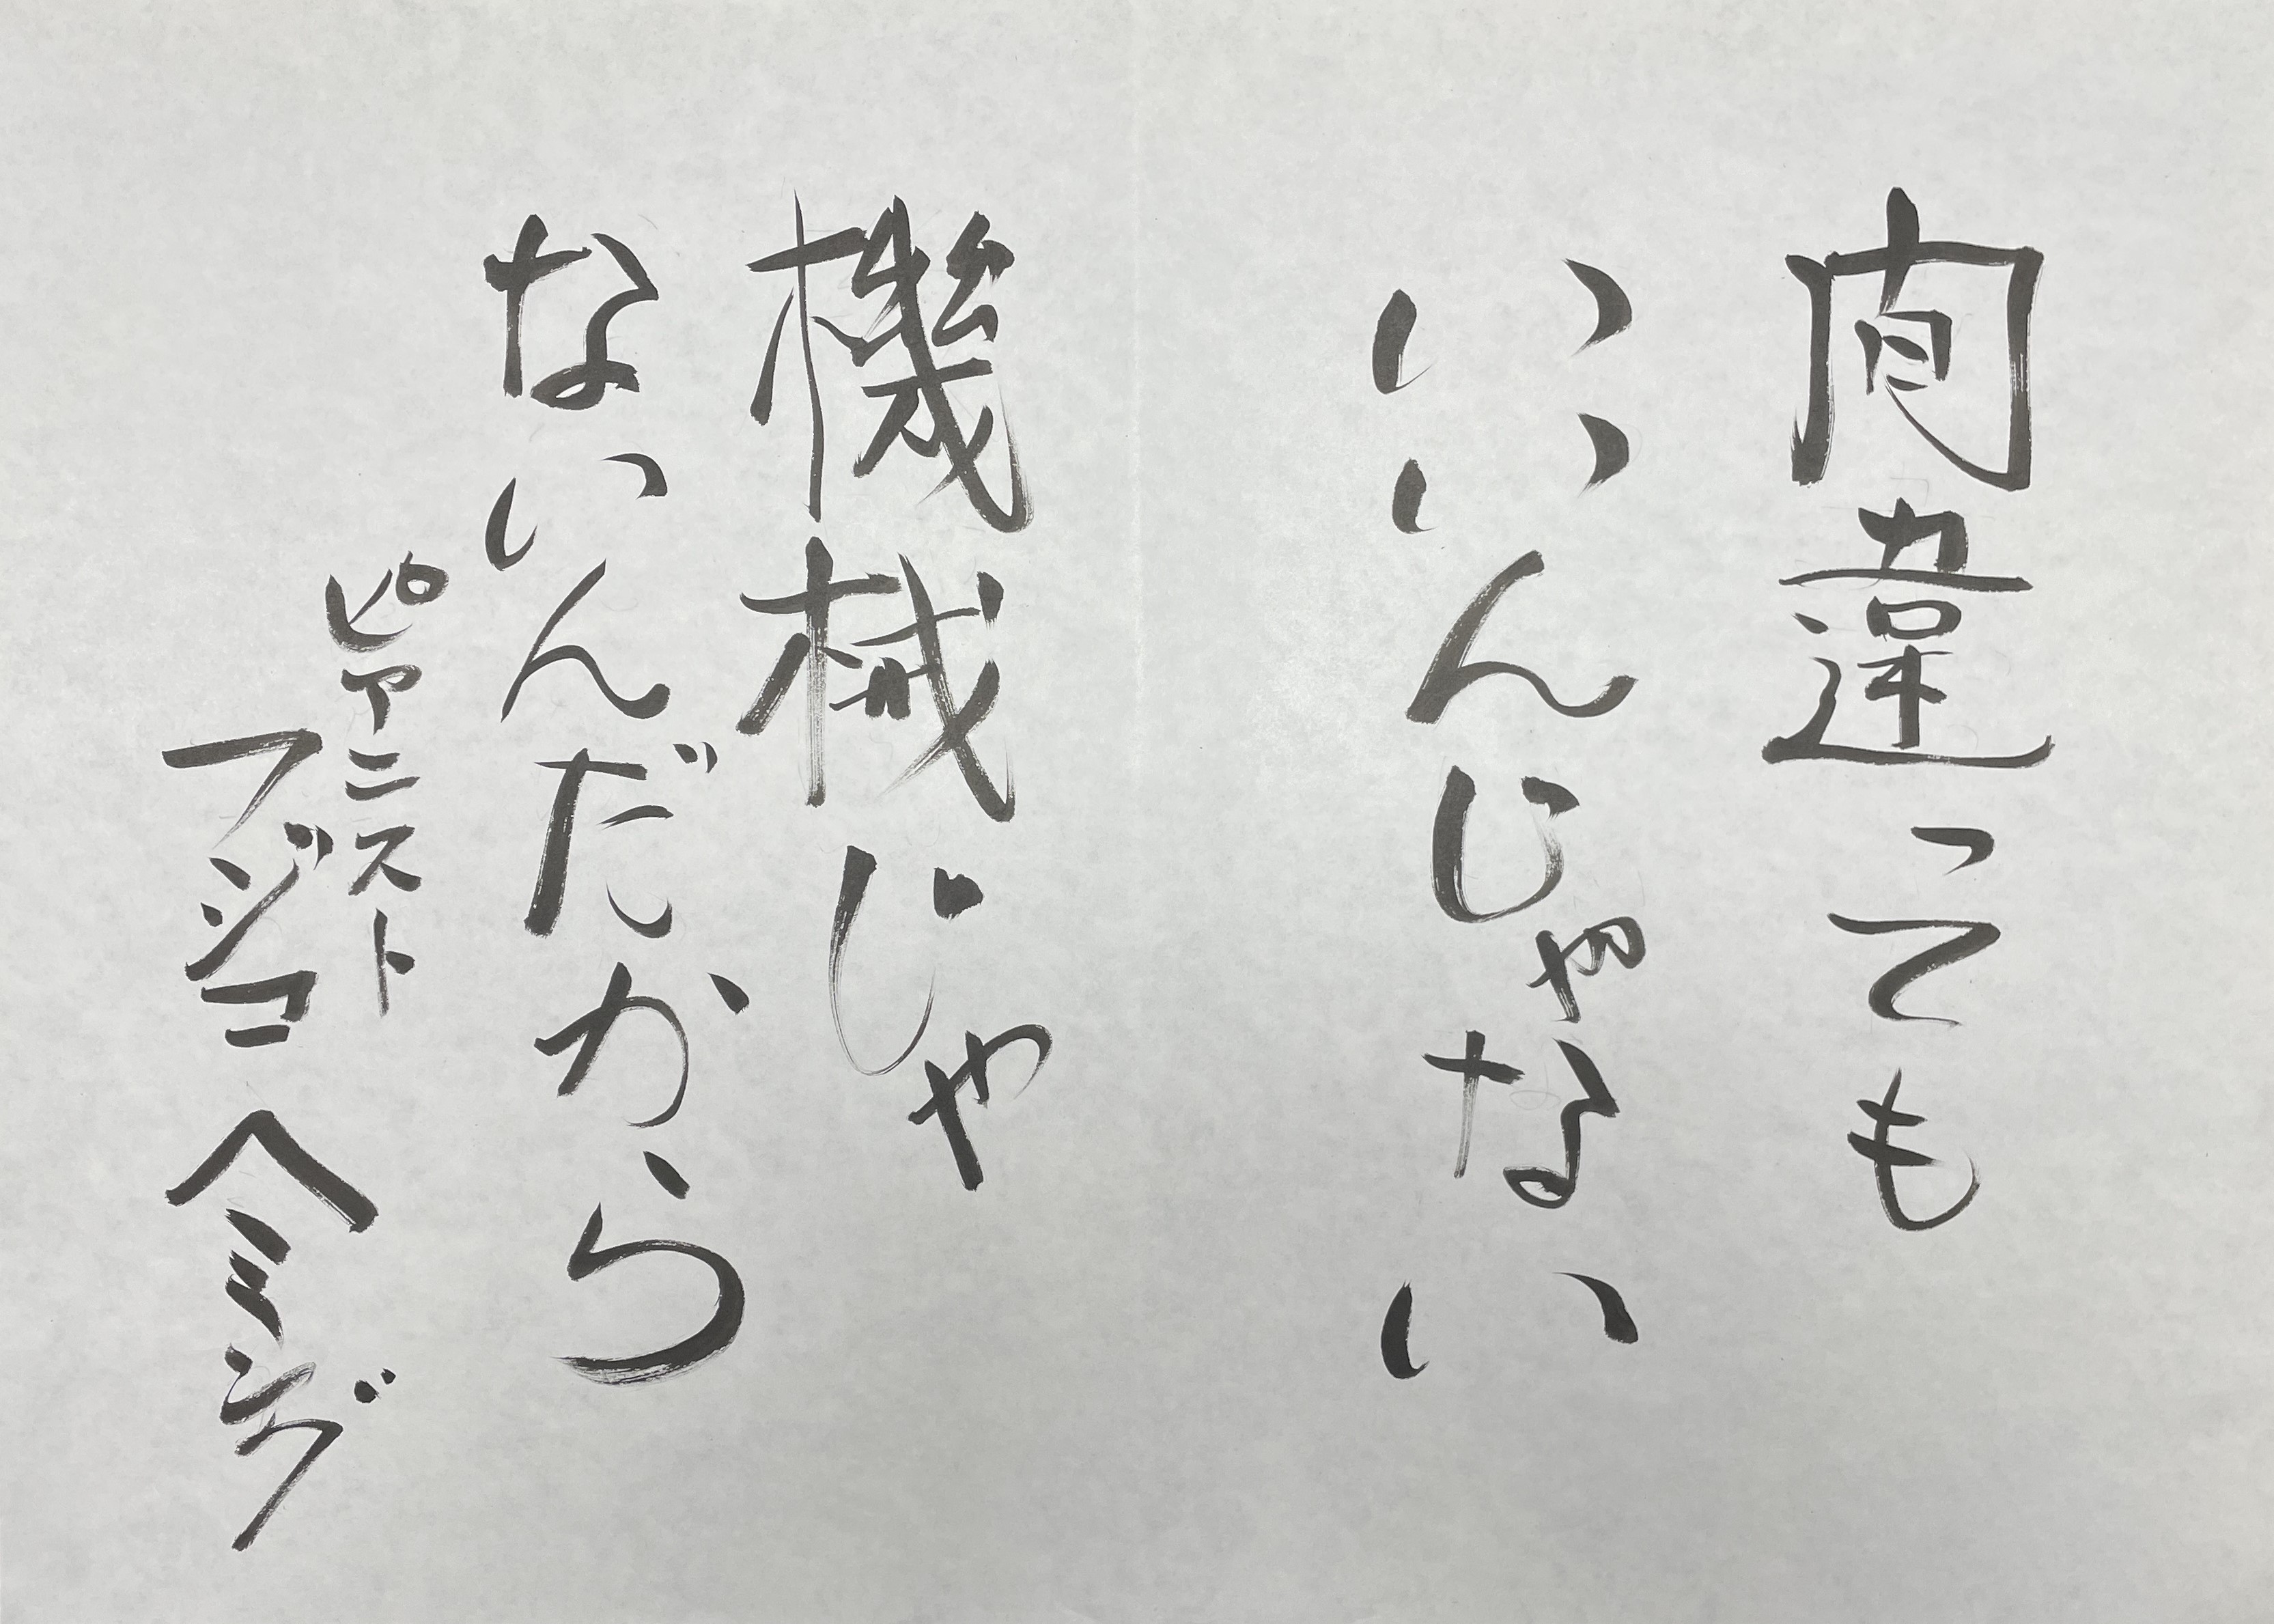 間違っても
いいんじゃない
機械じゃ
ないんだから
ピアニスト
フジコヘミング